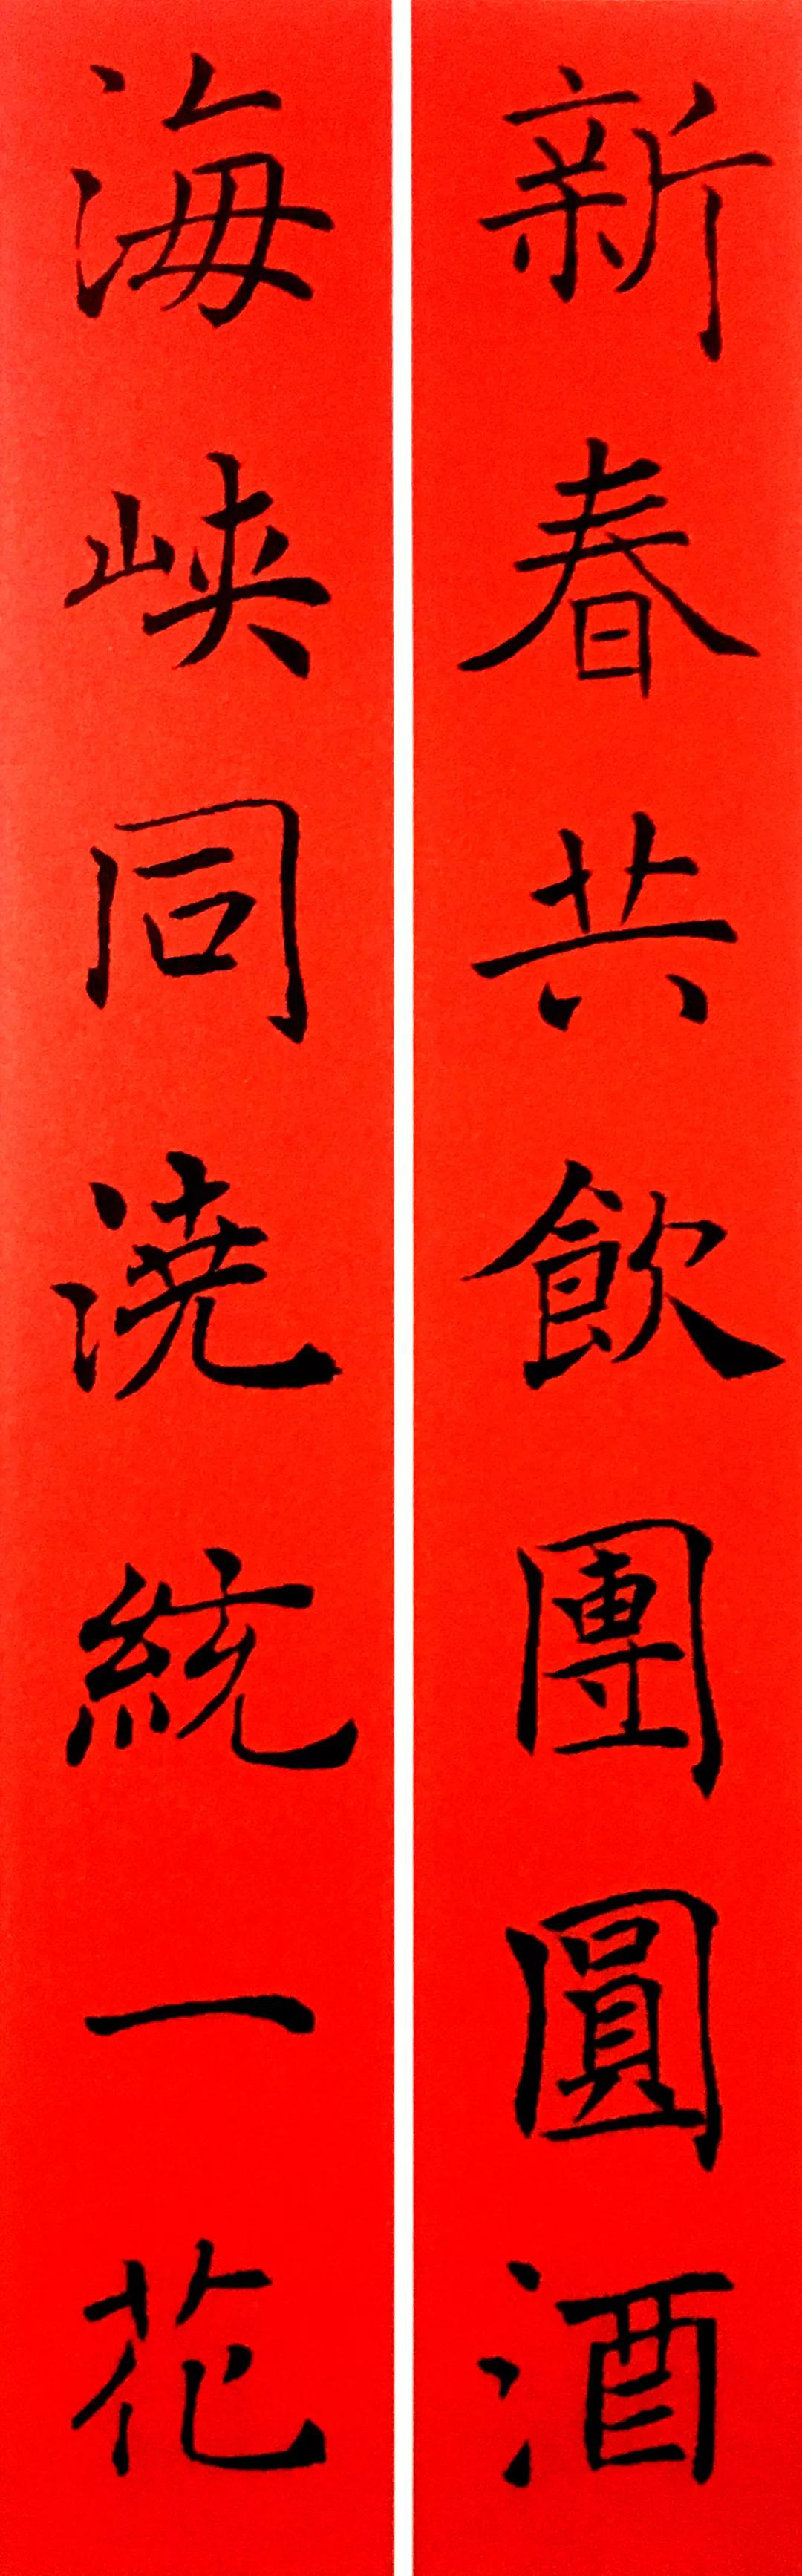 新春共飲團圓酒
海峡同澆統一花